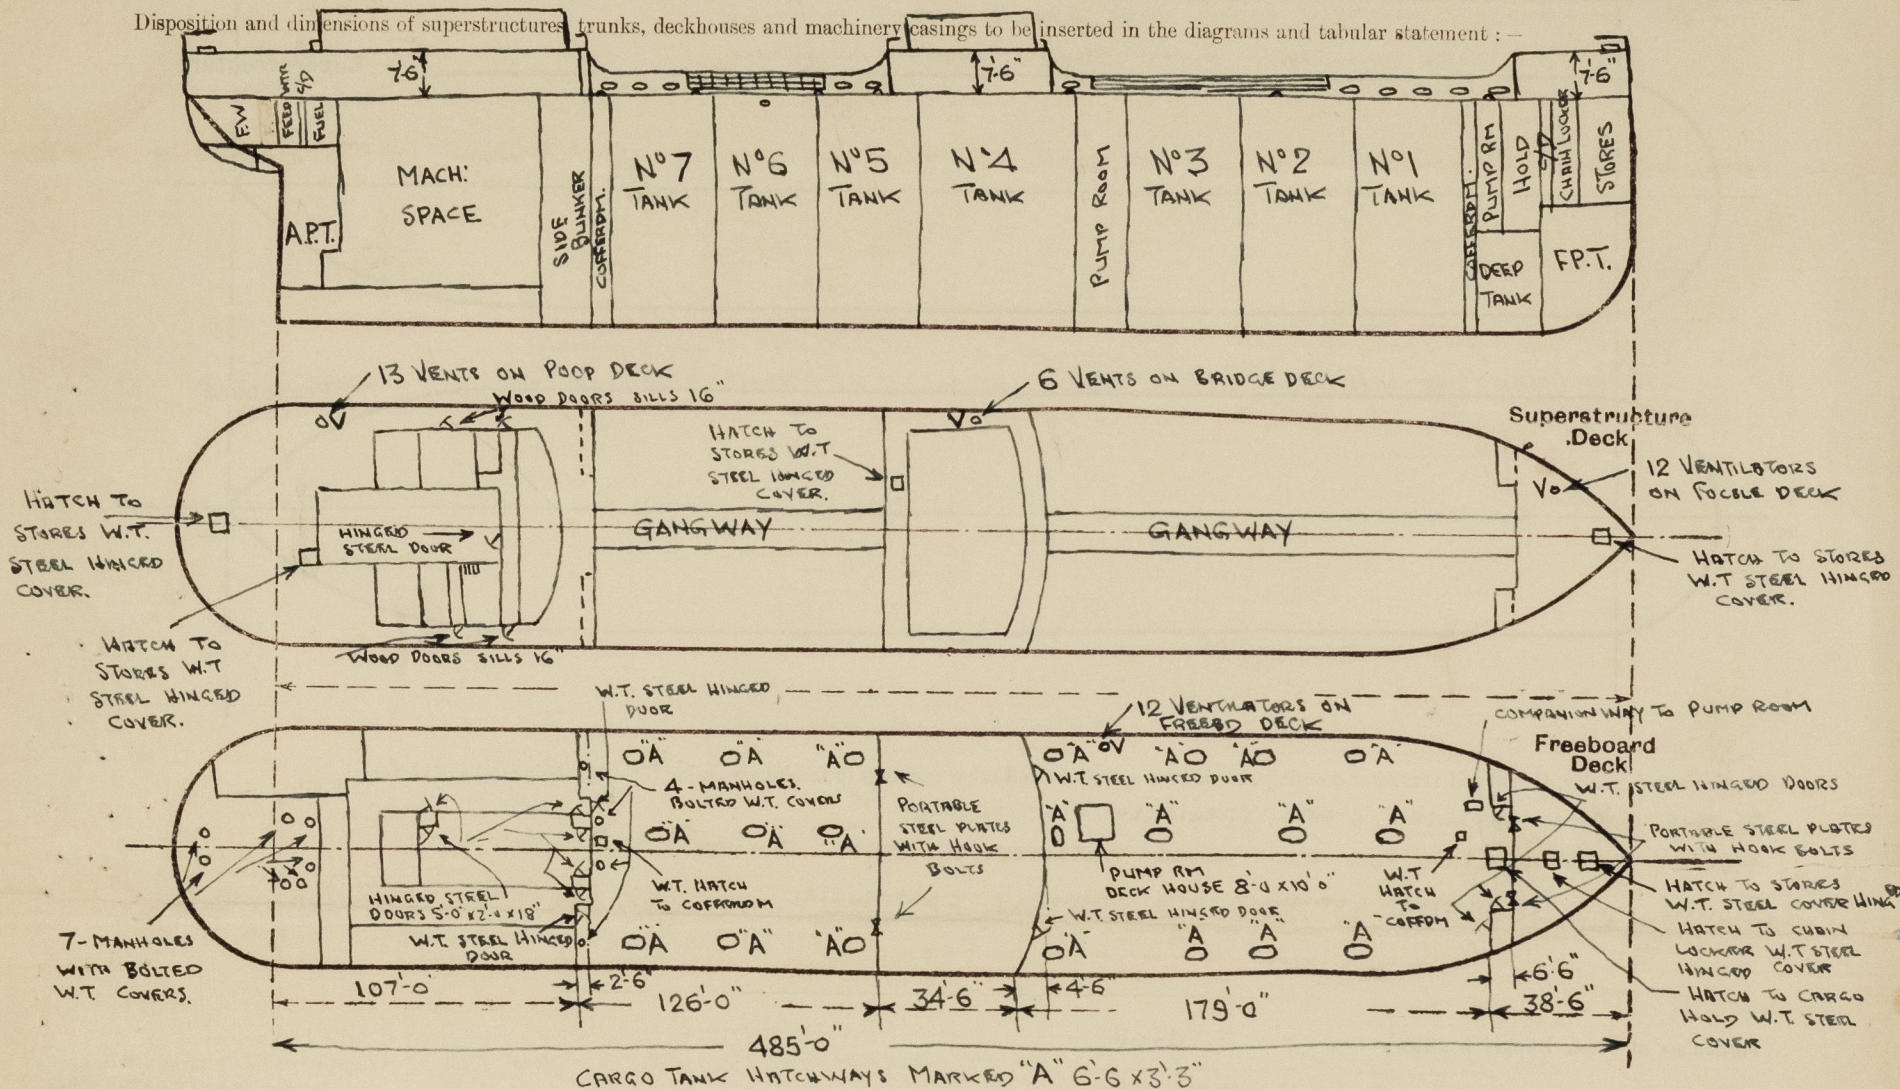 Disposition and dimensions of superstructures, trunks, deckhouses and machinery casings to be inserted in the diagrams and tabular statement :—
7'-6"
7'-6"
7'-6"
F.W
FEED WTR
C/D
FUEL
A.P.T.
MACH:
SPACE
SIDE
BUNKER
COFFERDM.
Nº7
TANK
Nº6
TANK
Nº5
TANK
Nº4
TANK
PUMP ROOM
Nº3
TANK
Nº2
TANK
Nº1
TANK
COFFERDM.
PUMP RM
HOLD
C/D
CHAIN LOCKER
STORES
DEEP
TANK
F.P.T.
13 VENTS ON POOP DECK
WOOD DOORS SILLS 16"
V
6 VENTS ON BRIDGE DECK
V
HATCH TO
STORES W.T
STEEL HINGED
COVER.
Superstructure
Deck
12 VENTILATORS
ON FOCSLE DECK
V
HATCH TO
STORES W.T.
STEEL HINGED
COVER.
HINGED
STEEL DOOR
GANGWAY
GANGWAY
HATCH TO STORES
W.T STEEL HINGED
COVER.
HATCH TO
STORES W.T
STEEL HINGED
COVER.
WOOD DOORS SILLS 16"
W.T. STEEL HINGED
DOOR
12 VENTILATORS ON
FREEBD DECK
V
COMPANIONWAY TO PUMP ROOM
Freeboard
Deck
"A" "A" "A" "A" "A" "A" "A"
W.T. STEEL HINGED DOOR
W.T. STEEL HINGED DOORS
4-MANHOLES.
BOLTED W.T. COVERS
PORTABLE
STEEL PLATES
WITH HOOK
BOLTS
"A" "A" "A" "A" "A" "A" "A"
PORTABLE STEEL PLATES
WITH HOOK BOLTS
PUMP RM
DECK HOUSE 8'-0 X 10'0"
W.T
HATCH
TO
COFFDM
HATCH TO STORES
W.T. STEEL COVER HINGED
HINGED STEEL
DOORS 5'-0" X 2'-0 X 18"
W.T. HATCH
TO COFFERDM
W.T. STEEL HINGED DOOR
W.T. STEEL HINGED
DOOR
"A" "A" "A" "A" "A" "A" "A"
HATCH TO CHAIN
LOCKER W.T STEEL
HINGED COVER
7-MANHOLES
WITH BOLTED
W.T. COVERS.
HATCH TO CARGO
HOLD W.T. STEEL
COVER
107'-0" 2'-6" 126'-0" 34'-6" 4'-6" 179'-0" 6'6" 38'-6"
485'-0"
CARGO TANK HATCHWAYS MARKED "A" 6'-6 X 3'-3"